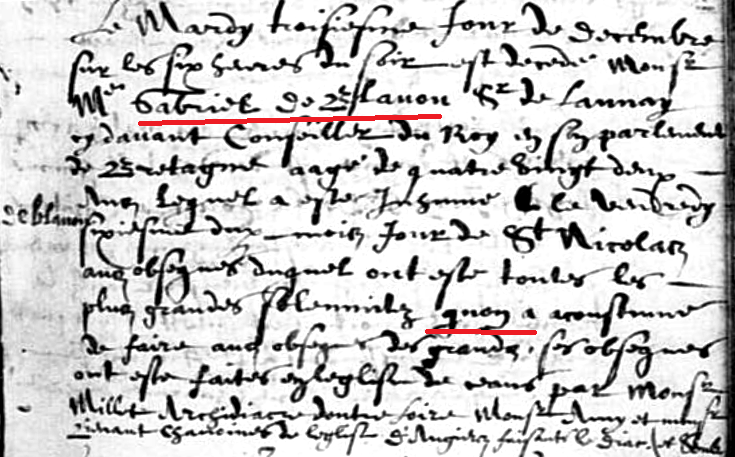 Le Mardy troisiesme Jour de decembre
sur les six heures du soir est decede Monsr
Mre Gabriel de Blavon Sr de Launay
cy davant Conseiller du Roy en son parlement
de Bretagne aagé de quatre vingt deux
ans lequel a esté Inhumé le vendredy
de blavon
sixiesme dud mois Jour de St Nicolas
aux obseques duquel ont esté toutes les
plus grandes solemnitez qu'on a acoustumé
de faire aux obseques des grands, ses obseques
ont esté faites en leglise de ceans par Monsr
Millet Archidiacre doutre Loire Monsr et monsr
Chanoines de leglise d'Angiers faisants le Diac et Soub